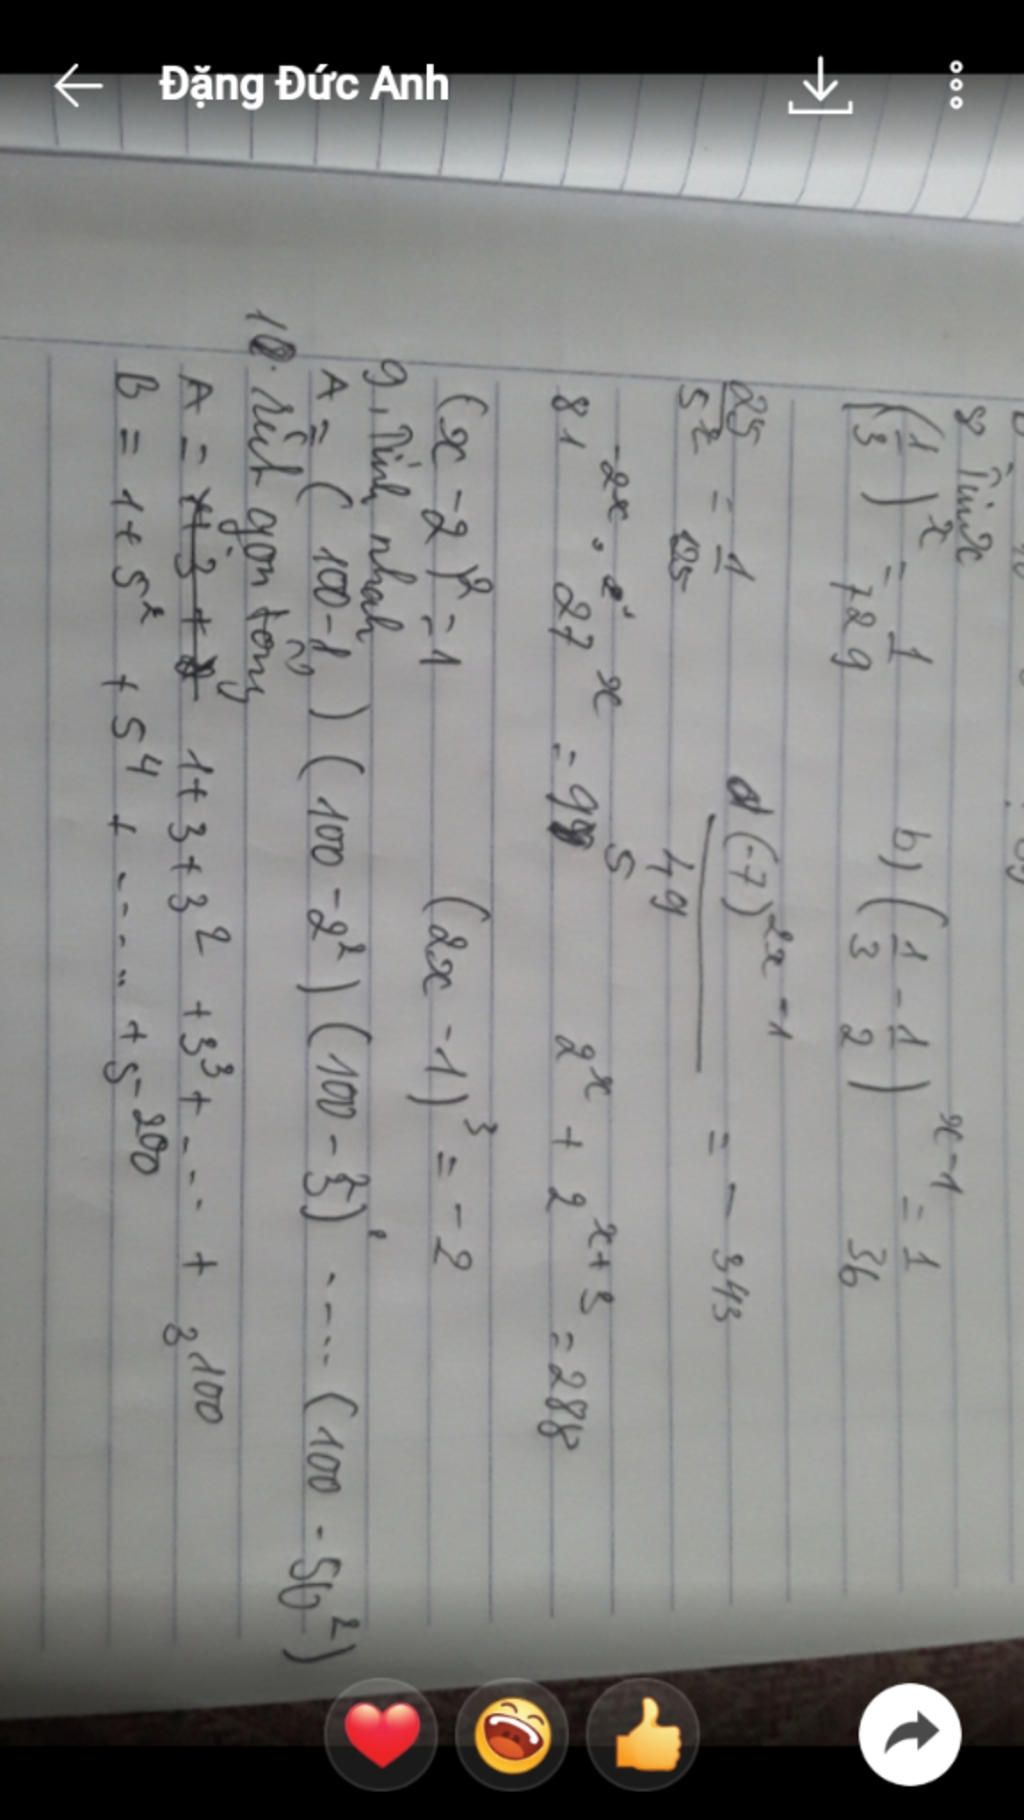 Đặng Đức Anh
8, Tìm x
(1/3)^x = 1/729    b) (1/3 - 1/2)^x-1 = 1/36
25/5^x = 1/125    d (-7)^2x-1 / 49 = - 343
81^-2x . 27^x = 9^5    2^x + 2^x+3 = 288
(x - 2)^2 = 1    (2x - 1)^3 = -2
9, Tính nhah
A = (100 - 1^2) (100 - 2^2) (100 - 3^2) .... (100 - 50^2)
10. rút gọn tong
A = 1 + 3 + 3^2 + 3^3 + .... + 3^100
B = 1 + 5^2 + 5^4 + ..... + 5^200